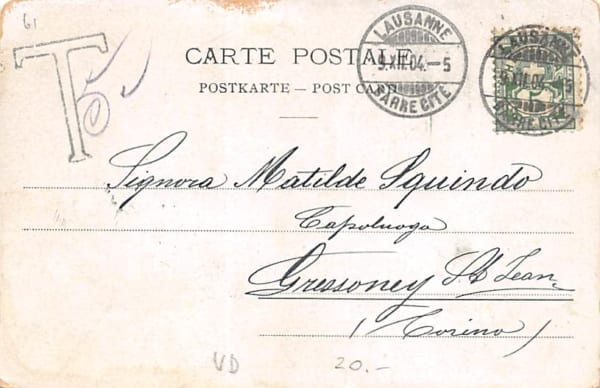 61
T
CARTE POSTALE
POSTKARTE — POST CARD
LAUSANNE
9.XII.04.–5
BARRE CITÉ
LAUSANNE
9.XII.04
BARRE CITÉ
Signora Matilde Squindo
Capoluogo
Gressoney St Jean
(Torino)
VD
20.-